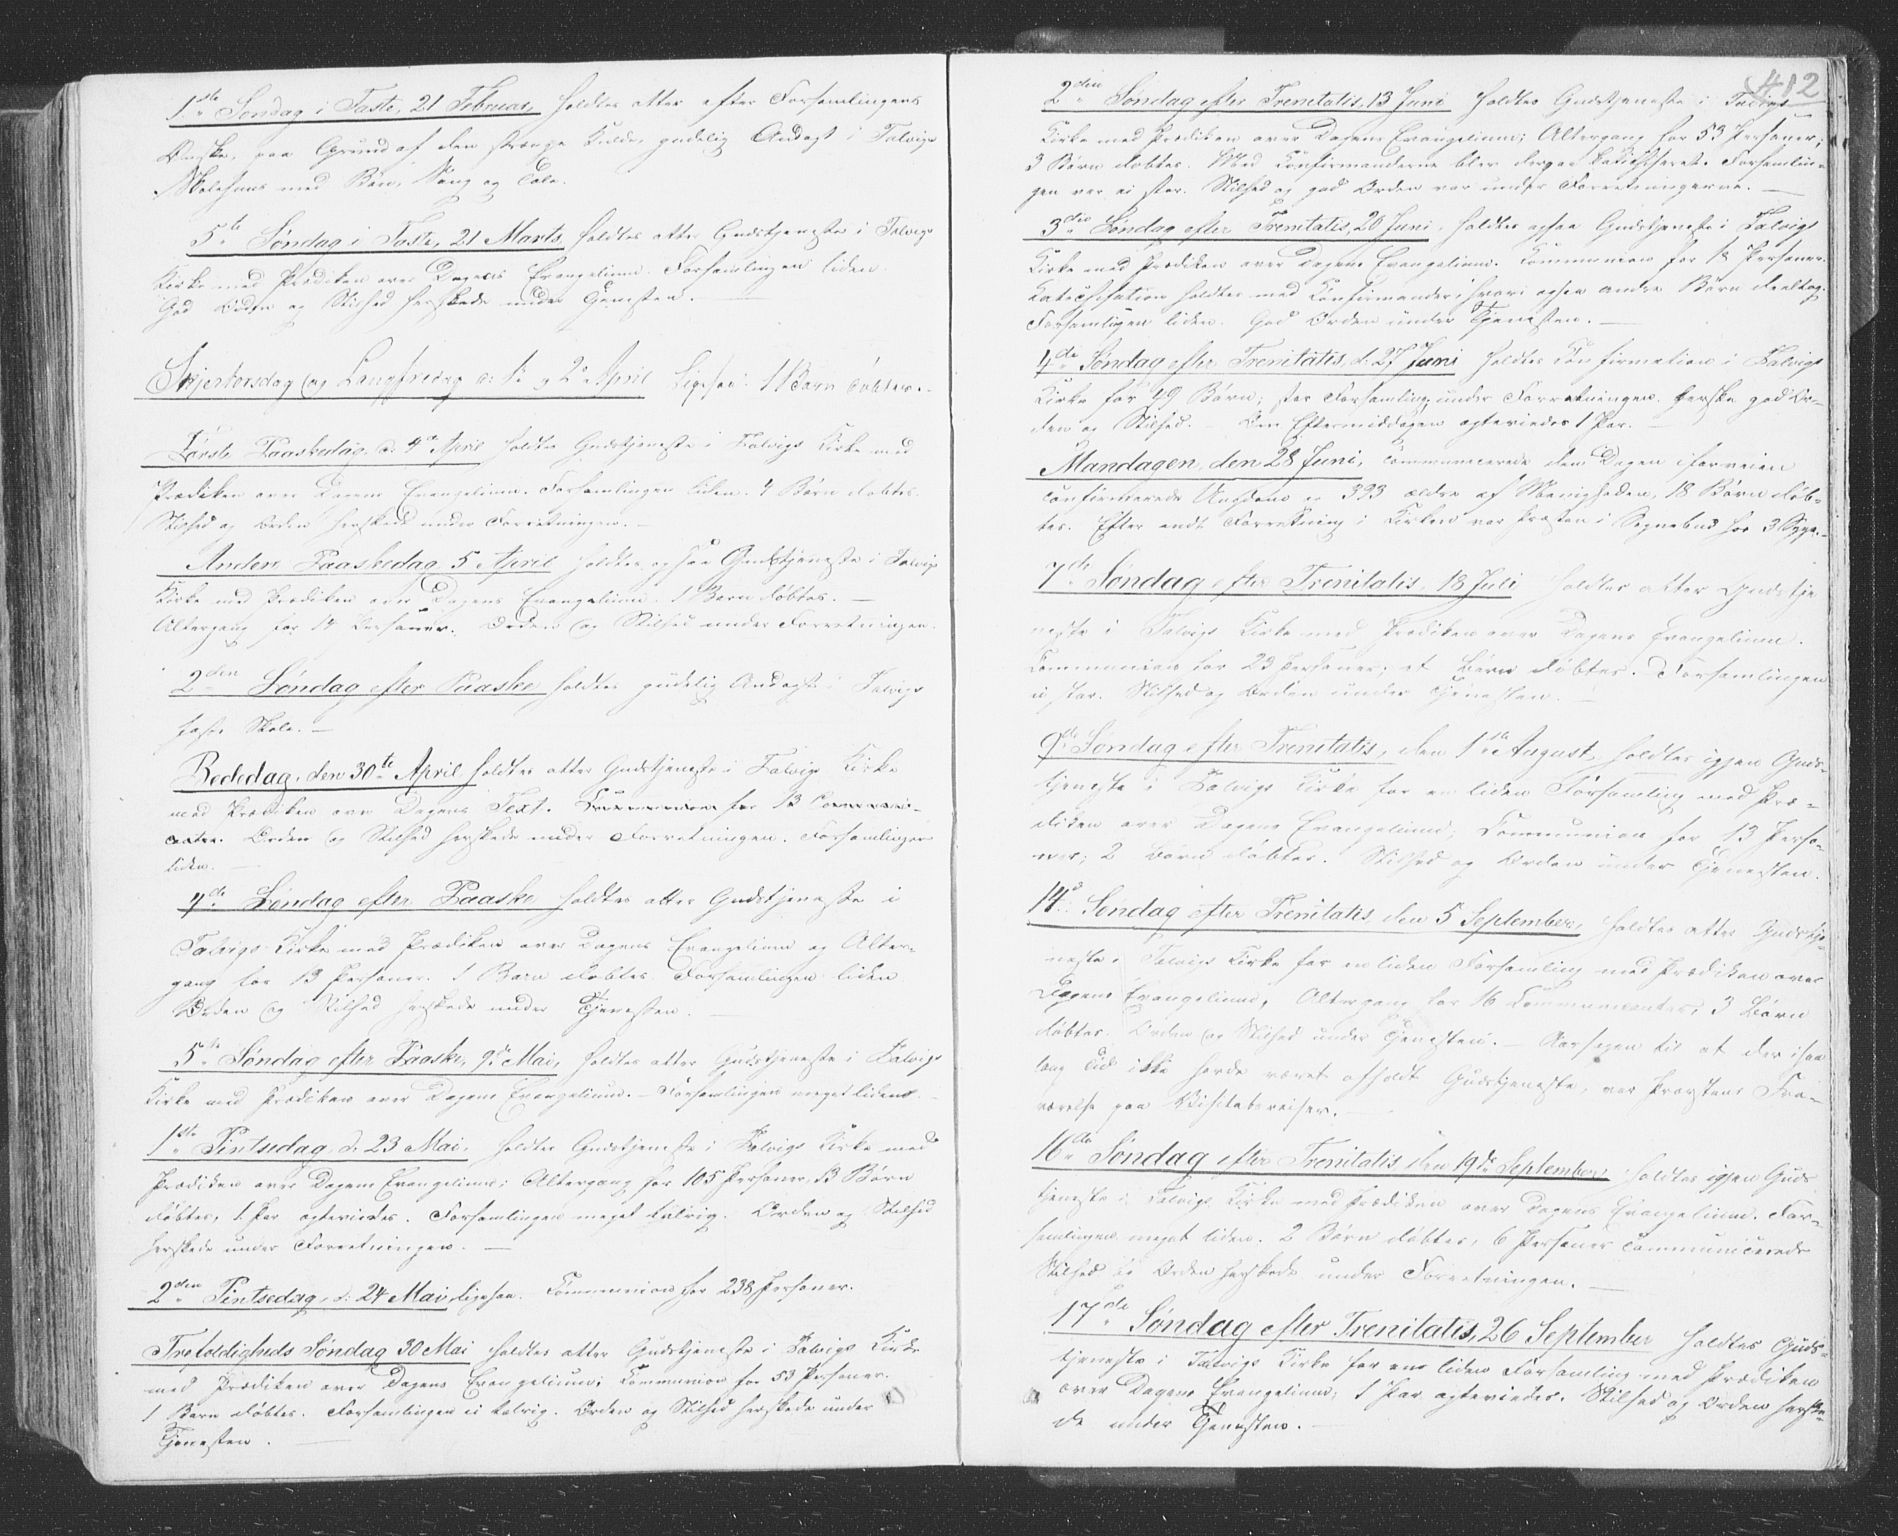 1ste Søndag i Faste, 21 Februar, holdtes atter efter Forsamlingens
Ønske, paa Grund af den strenge Kulde, gudelig Andagt i Talvigs
Skolehuus med Bøn, Sang og Tale.
5te Søndag i Faste, 21 Marts holdtes atter Gudstjeneste i Talvigs
Kirke med Prædiken over Dagens Evangelium. Forsamlingen liden.
God Orden og Stilhed herskede under Tjenesten. —
Skjertorsdag og Langfredag d: 1ste og 2den April ligesaa. 1 Barn døbtes.
Første Paaskedag, d. 4de April holdtes Gudstjeneste i Talvigs Kirke med
Prædiken over Dagens Evangelium. Forsamlingen liden. 4 Børn døbtes.
Stilhed og Orden herskede under Forretningen. —
Anden Paaskedag 5 April holdtes ogsaa Gudstjeneste i Talvigs
Kirke med Prædiken over Dagens Evangelium. 1 Barn døbtes. —
Altergang for 14 Personer. Orden og Stilhed under Forretningen.
2den Søndag efter Paaske holdtes gudelig Andagt i Talvigs
faste Skole. —
Bededag, den 30te April holdtes atter Gudstjeneste i Talvigs Kirke
med Prædiken over Dagens Text. Communion for 13 Communi-
canter. Orden og Stilhed herskede under Forretningen. Forsamlingen
liden. —
4de Søndag efter Paaske holdtes atter Gudstjeneste i
Talvigs Kirke med Prædiken over Dagens Evangelium og Alter-
gang for 13 Personer. 1 Barn døbtes. Forsamlingen liden
Orden og Stilhed herskede under Tjenesten. —
5te Søndag efter Paaske, 9de Mai, holdtes atter Gudstjeneste i Talvigs
Kirke med Prædiken over Dagens Evangelium. — Forsamlingen meget liden.
1ste Pintsedag, d. 23 Mai, holdtes Gudstjeneste i Talvigs Kirke med
Prædiken over Dagens Evangelium; Altergang for 105 Personer, 13 Børn
døbtes, 1 Par egteviedes. Forsamlingen meget talrig. Orden og Stilhed
herskede under Forretningen. —
2den Pintsedag, d. 24 Mai, ligesaa. Communion for 238 Personer.
Trefoldigheds Søndag 30 Mai holdtes atter Gudstjeneste i Talvigs Kirke
med Prædiken over Dagens Evangelium; Communion for 53 Personer.
1 Barn døbtes. Forsamlingen ei talrig. Orden og Stilhed herskede under
Tjenesten. —
412
2den Søndag efter Trenitatis, 13 Juni holdtes Gudstjeneste i Talvigs
Kirke med Prædiken over Dagens Evangelium; Altergang for 53 Personer;
3 Børn døbtes. Med Confirmanderne blev derpaa katechiseret. Forsamlin-
gen var ei stor. Stilhed og god Orden var under Forretningerne. —
3die Søndag efter Trenitatis, 20 Juni, holdtes ogsaa Gudstjeneste i Talvigs
Kirke med Prædiken over Dagens Evangelium. Communion for 18 Personer.
Katechisation holdtes med Confirmander, hvori ogsaa andre Børn deeltog.
Forsamlingen liden. God Orden under Tjenesten. —
4de Søndag efter Trenitatis, d. 27 Juni holdtes Confirmation i Talvigs
Kirke for 49 Børn; stor Forsamling; under Forretningen herske god Or-
den og Stilhed. — Om Eftermiddagen egteviedes 1 Par. —
Mandagen, den 28 Juni, communicerede den Dagen iforveien
confirmerede Ungdom og 393 ældre af Menigheden, 18 Børn døb-
tes. Efter endt Forretning i Kirken var Præsten i Sognebud hos 3 Syge.
7de Søndag efter Trenitatis, 18 Juli holdtes atter Gudstje
neste i Talvigs Kirke med Prædiken over Dagens Evangelium.
Communion for 23 Personer; et Barn døbtes. Forsamlingen
ei stor. Stilhed og Orden under Tjenesten. —
9de Søndag efter Trenitatis, den 1ste August, holdtes igjen Guds-
tjeneste i Talvigs Kirke for en liden Forsamling med Præ-
diken over Dagens Evangelium; Communion for 13 Perso-
ner; 2 Børn døbtes. Stilhed og Orden under Tjenesten.
14de Søndag efter Trenitatis, den 5 September, holdtes atter Gudstje-
neste i Talvigs Kirke for en liden Forsamling med Prædiken over
Dagens Evangelium, Altergang for 16 Communicanter; 3 Børn
døbtes. Orden og Stilhed under Tjenesten. — Aarsagen til at der i saa
lang Tid ikke havde været afholdt Gudstjeneste, var Provstens Fra-
værelse paa Visitatsreiser. —
16de Søndag efter Trenitatis, den 19de September, holdtes igjen Guds
tjeneste i Talvigs Kirke med Prædiken over Dagens Evangelium. For-
samlingen meget liden. 2 Børn døbtes, 6 Personer communicerede
Stilhed og Orden herskede under Forretningen. —
17de Søndag efter Trenitatis, 26 September holdtes Guds-
tjeneste i Talvigs Kirke for en liden Forsamling med Prædiken
over Dagens Evangelium; 1 Par egteviedes. Stilhed og Orden herske-
de under Tjenesten. —